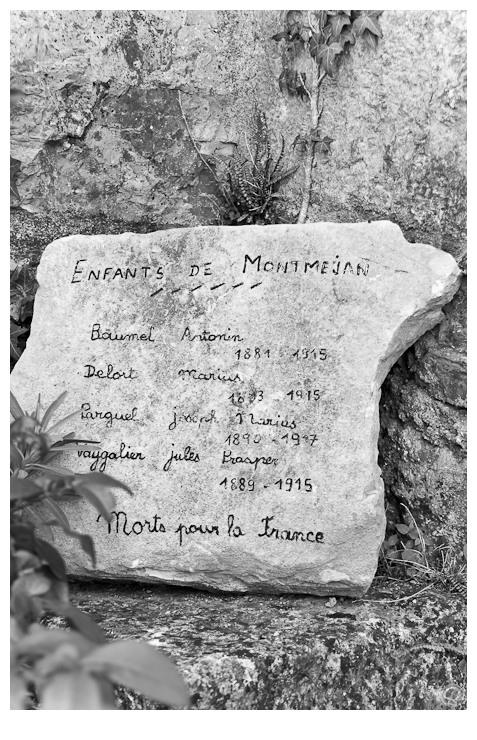 ENFANTS DE MONTMEJAN
Baumel Antonin
1881 - 1915
Delort Marius
1893 1915
Parguel joseph Marius
1890 - 1917
Vaygalier julès Prasper
1889 - 1915
Morts pour la France